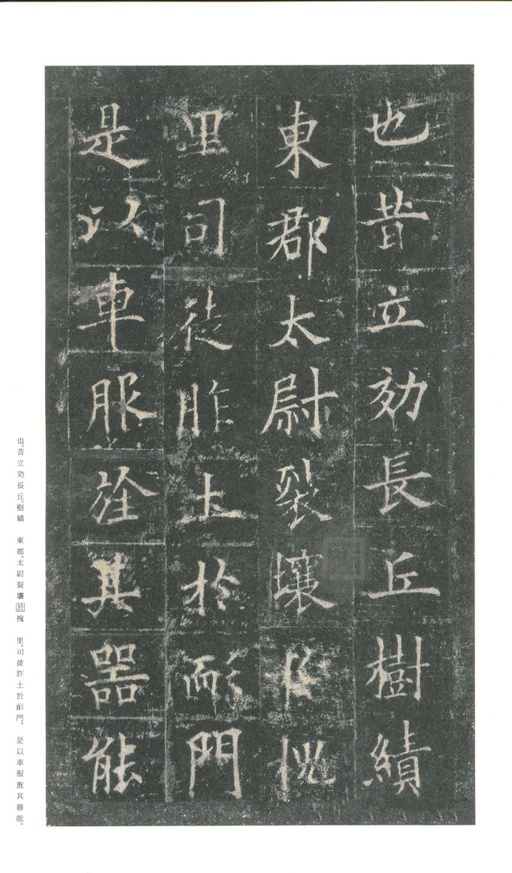 也昔立効長丘樹績
東郡太尉裂壤於槐
里司徒胙土於耏門
是以車服旌其器能
也。昔立効長丘。樹績 東郡。太尉裂壤於槐 里。司徒胙土於耏門。 是以車服旌其器能。